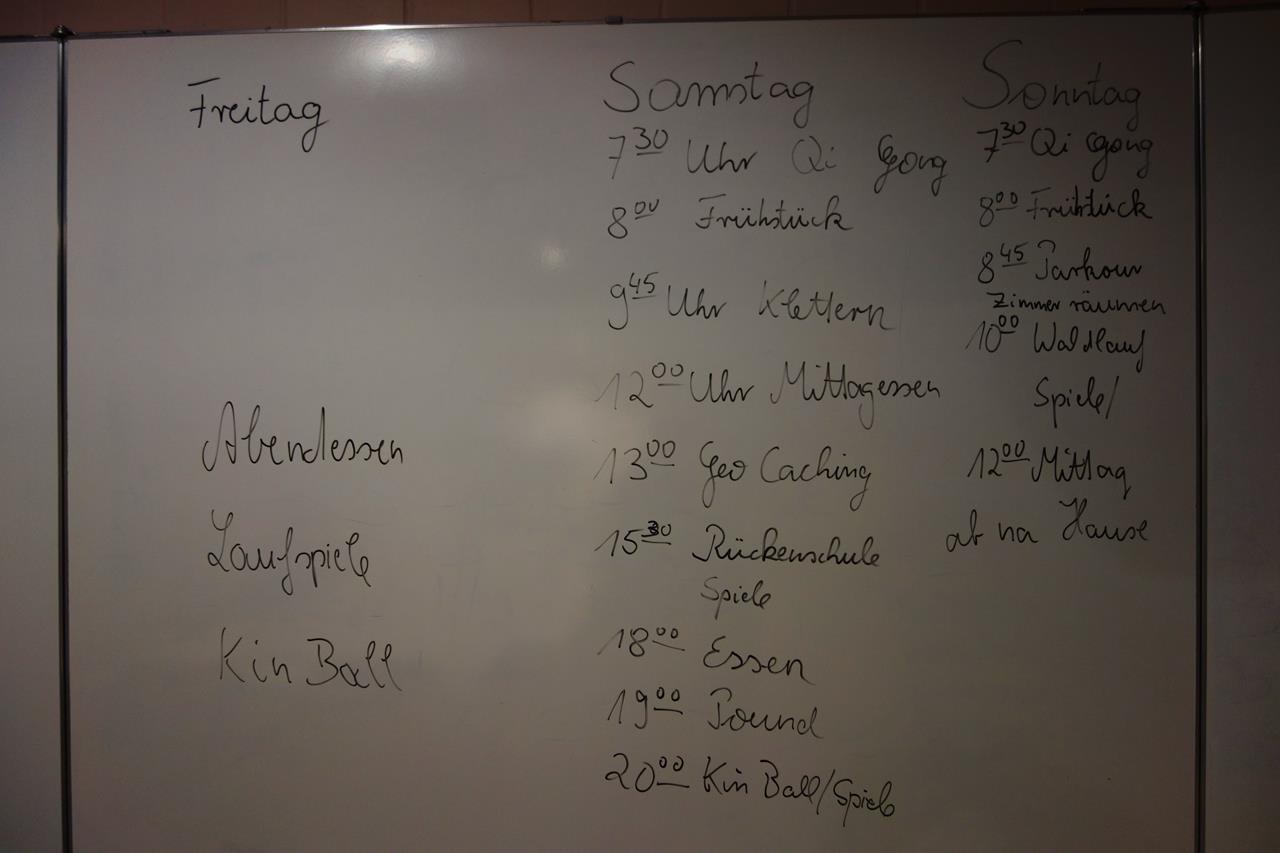 Freitag
Abendessen
Laufspiele
Kin Ball
Samstag
7 30 Uhr Qi Gong
8 00 Frühstück
9 45 Uhr Klettern
12 00 Uhr Mittagessen
13 00 Geo Caching
15 30 Rückenschule
Spiele
18 00 Essen
19 00 Pound
20 00 Kin Ball/Spiele
Sonntag
7 30 Qi Gong
8 00 Frühstück
8 45 Parkour
Zimmer räumen
10 00 Waldlauf
Spiele/
12 00 Mittag
ab na Hause